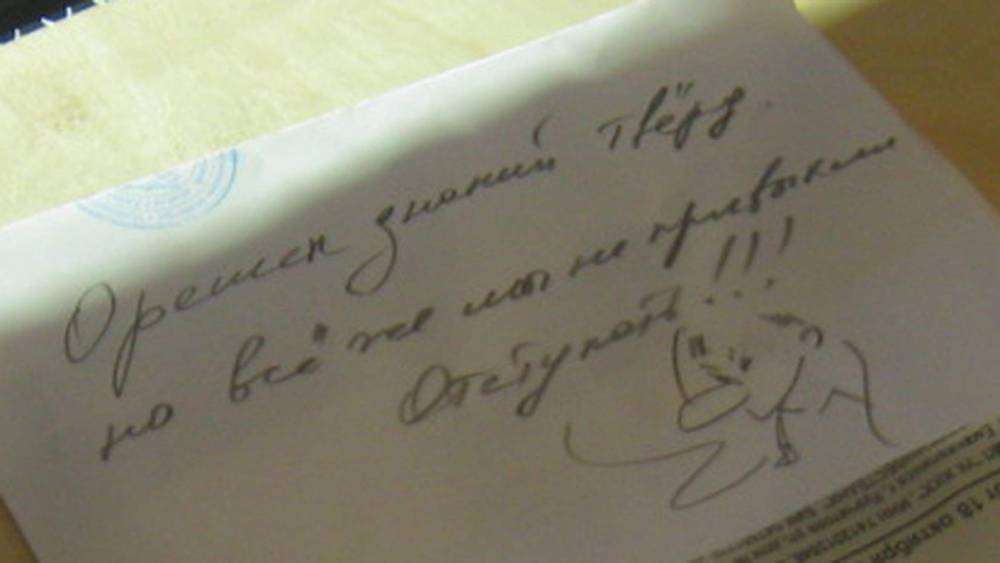 Орешек знаний твёрд.
но всё же мы не привыкли
Отступать!!!
от 18 октября